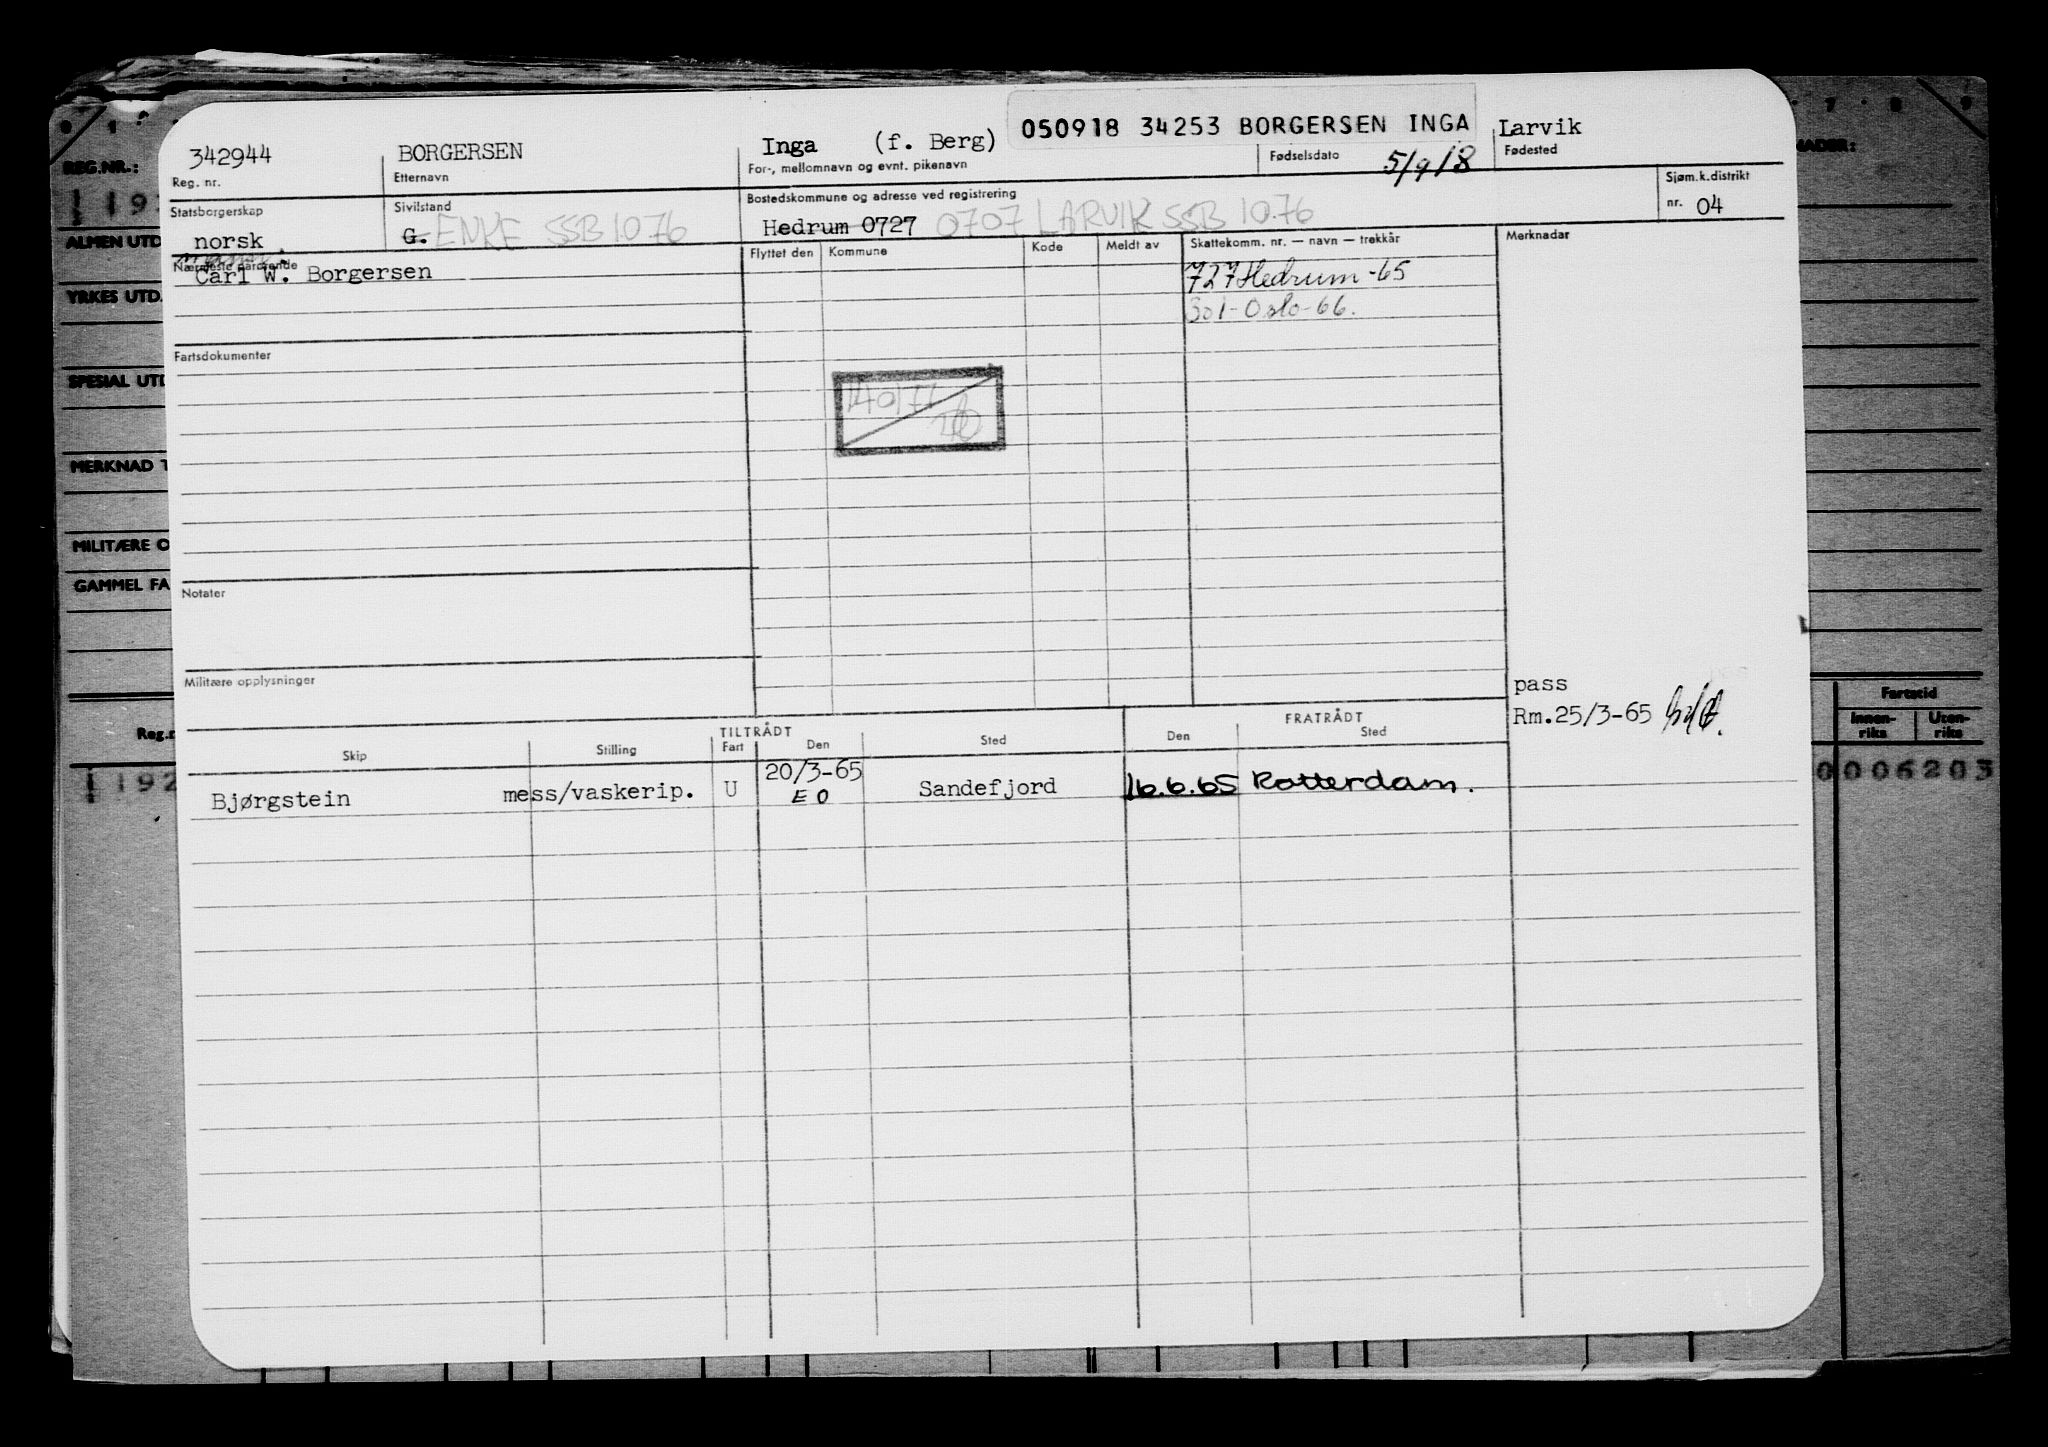 342944 BORGERSEN Inga (f. Berg) 050918 34253 BORGERSEN INGA Larvik
Reg. nr. Etternavn For-, mellomnavn og evnt. pikenavn Fødselsdato 5/9/18 Fødested
Statsborgerskap Sivilstand Bostedskommune og adresse ved registrering Sjøm.k.distrikt
norsk G. ENKE SSB 1076 Hedrum 0727 0707 LARVIK SSB 10.76 nr. 04
Nærmeste pårørende Flyttet den Kommune Kode Meldt av Skattekomm. nr. — navn — trekkår Merknader
Carl W. Borgersen 727 Hedrum -65
301-Oslo-66.
Fartsdokumenter
Notater
Militære opplysninger
pass
Rm.25/3-65
TILTRÅDT FRATRÅDT
Skip Stilling Fart Den Sted Den Sted
Bjørgstein mess/vaskerip. U 20/3-65 Sandefjord 16.6.65 Rotterdam.
EO
REG.NR.:
192
ALMEN UTD
YRKES UTD.
SPESIAL UTD
MERKNAD T
MILITÆRE O
GAMMEL FA
Reg.n
192
7 8 9
NADER:
Fartstid
Innen-riks Uten-riks
0006203